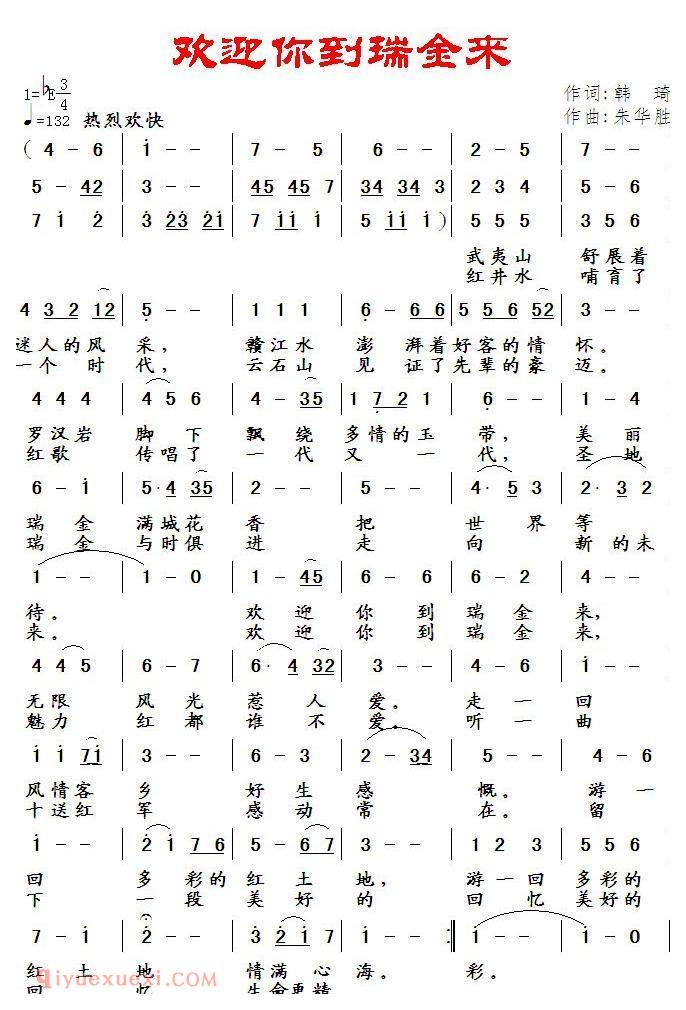 欢迎你到瑞金来
1=♭E 3/4
♩=132 热烈欢快
作词: 韩 琦
作曲: 朱华胜
( 4 - 6 | i - - | 7 - 5 | 6 - - | 2 - 5 | 7 - - |
5 - 42 | 3 - - | 45 45 7 | 34 34 3 | 2 3 4 | 5 - 6 |
7 i 2 | 3 23 21 | 7 ii i | 5 ii i ) | 5 5 5 | 3 5 6 |
武夷山 舒展着
红井水 哺育了
4 32 12 | 5 - - | 1 1 1 | 6 - 66 | 5 56 52 | 3 - - |
迷人的风 采, 赣江水 澎 湃着好客的情 怀。
一个 时 代, 云石山 见 证了先辈的豪 迈。
4 4 4 | 4 5 6 | 4 - 35 | 1 72 1 | 6 - - | 1 - 4 |
罗汉岩 脚 下 飘 绕 多情的玉 带, 美 丽
红歌 传唱了 一 代 又 一 代, 圣 地
6 - i | 5· 4 35 | 2 - - | 5 - - | 4· 5 3 | 2· 3 2 |
瑞 金 满城花 香 把 世 界 等
瑞 金 与时俱 进 走 向 新 的未
1 - - | 1 - 0 | 1 - 45 | 6 - 6 | 6 - 2 | 4 - - |
待。 欢 迎 你 到 瑞 金 来,
来。 欢 迎 你 到 瑞 金 来,
4 4 5 | 6 - 7 | 6· 4 32 | 3 - - | 4 - 6 | i - - |
无限 风 光 惹 人 爱。 走 一 回
魅力 红 都 谁 不 爱。 听 一 曲
i i 7i | 3 - - | 6 - 3 | 2 - 34 | 5 - - | 4 - 6 |
风情客 乡 好 生 感 慨。 游 一
十送红 军 感 动 常 在。 留
i - - | 2 i 76 | 5 - 67 | 3 - - | i 2 3 | 5 5 5 |
回 多 彩的 红 土 地, 游一回 多彩的
下 一 段 美 好 的 回 忆 美好的
7 - i | 2 - - | 3 2i 7 | i - - :| i - - | i - 0 |
红 土 地 情满 心 海。 彩。
qiyuexuexi.com
回 忆 生命更精